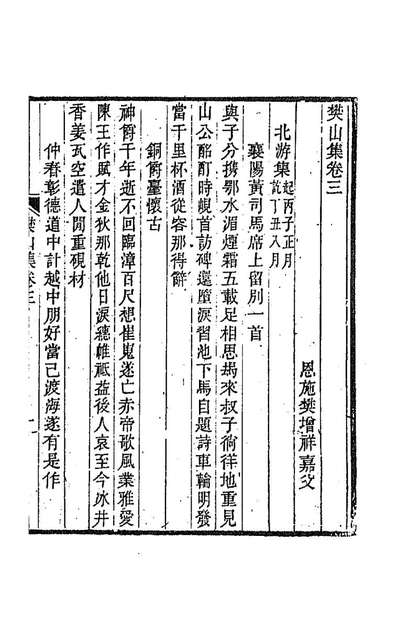 樊山集卷三
恩施樊增祥嘉父
北游集起丙子正月訖丁丑八月
襄陽黃司馬席上留別一首
與子分攜鄂水湄煙霜五載足相思朅來叔子徜徉地重見
山公酩酊時峴首訪碑還墮淚習池下馬自題詩車輪明發
當千里杯酒從容那得辭
銅爵臺懷古
神爵千年逝不回臨漳百尺想崔嵬遂亡赤帝歌風業雅愛
陳王作賦才金狄那乾他日淚繐帷祗益後人哀至今冰井
香姜瓦空遺人閒重硯材
仲春彰德道中計越中朋好當已渡海遂有是作
樊山集卷三
一